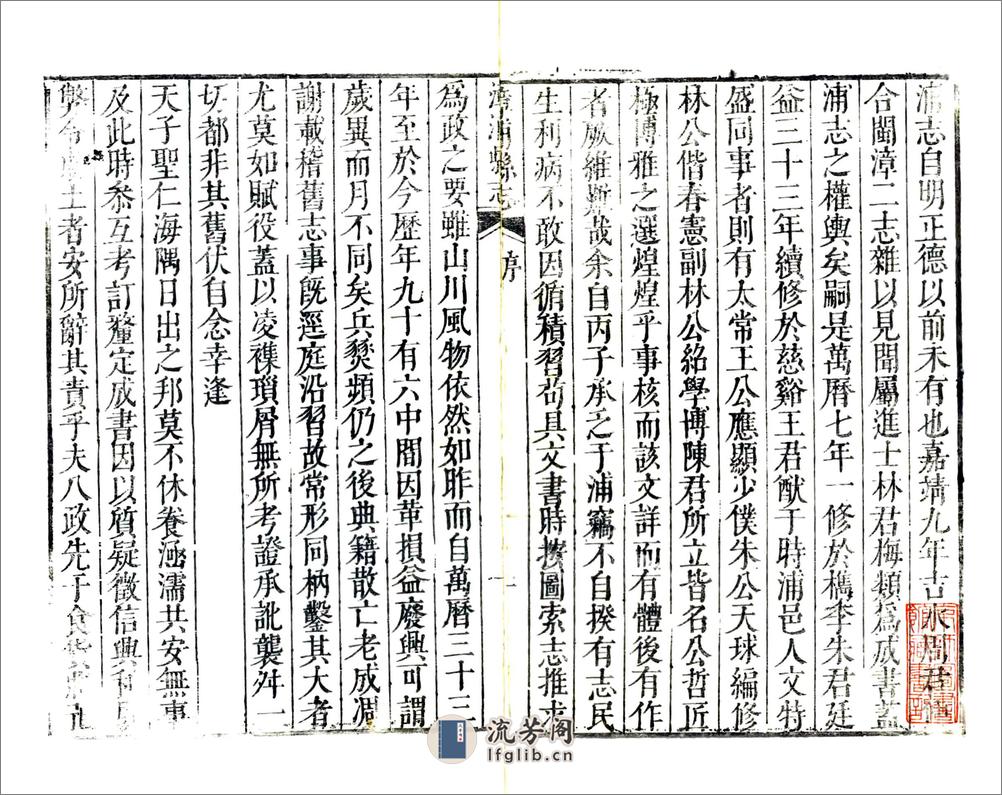 浦志自明正德以前未有也嘉靖九年吉水周君
合閩漳二志雜以見聞屬進士林君梅類爲成書蓋
浦志之權輿矣嗣是萬曆七年一修於檇李朱君廷
益三十三年續修於慈谿王君猷于時浦邑人文特
盛同事者則有太常王公應顯少僕朱公天球編修
林公偕春憲副林公紹學博陳君所立皆名公哲匠
極博雅之選煌煌乎事核而該文詳而有體後有作
者厥維艱哉余自丙子承乏于浦竊不自揆有志民
生利病不敢因循積習苟具文書時揆圖索志推求
漳浦縣志 序 一
爲政之要雖山川風物依然如昨而自萬曆三十三
年至於今歷年九十有六中間因革損益廢興可謂
歲異而月不同矣兵燹頻仍之後典籍散亡老成凋
謝載稽舊志事旣逕庭沿習故常形同枘鑿其大者
尤莫如賦役蓋以凌襍瑣屑無所考證承訛襲舛一
切都非其舊伏自念幸逢
天子聖仁海隅日出之邦莫不休養涵濡共安無事
及此時叅互考訂釐定成書因以質疑徵信興利
者安所辭其責乎夫八政先于食
流芳阁
lfglib.cn